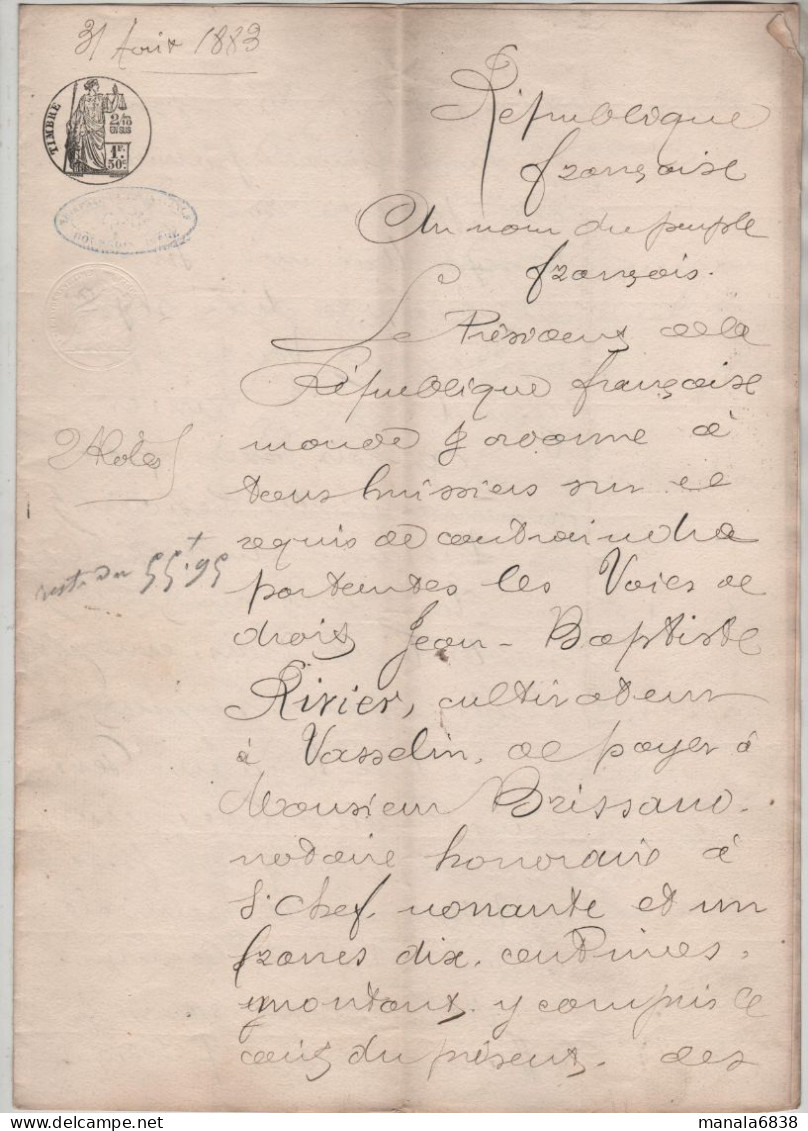 31 Août 1883
TIMBRE
2/10
EN SUS
1F.
50C.
République
française
Au nom du peuple
français.
Le Président de la
République française
mande & ordonne à
tous huissiers sur ce
requis de contraindre
par toutes les Voies de
droit Jean-Baptiste
Rivier, cultivateur
à Vasselin, de payer à
Monsieur Brissaud
notaire honoraire à
St Chef, nonante et un
francs dix centimes,
montant, y compris le
coût du présent, des
2 Rôles
reste du 55f.95
www.delcampe.net
manala6838